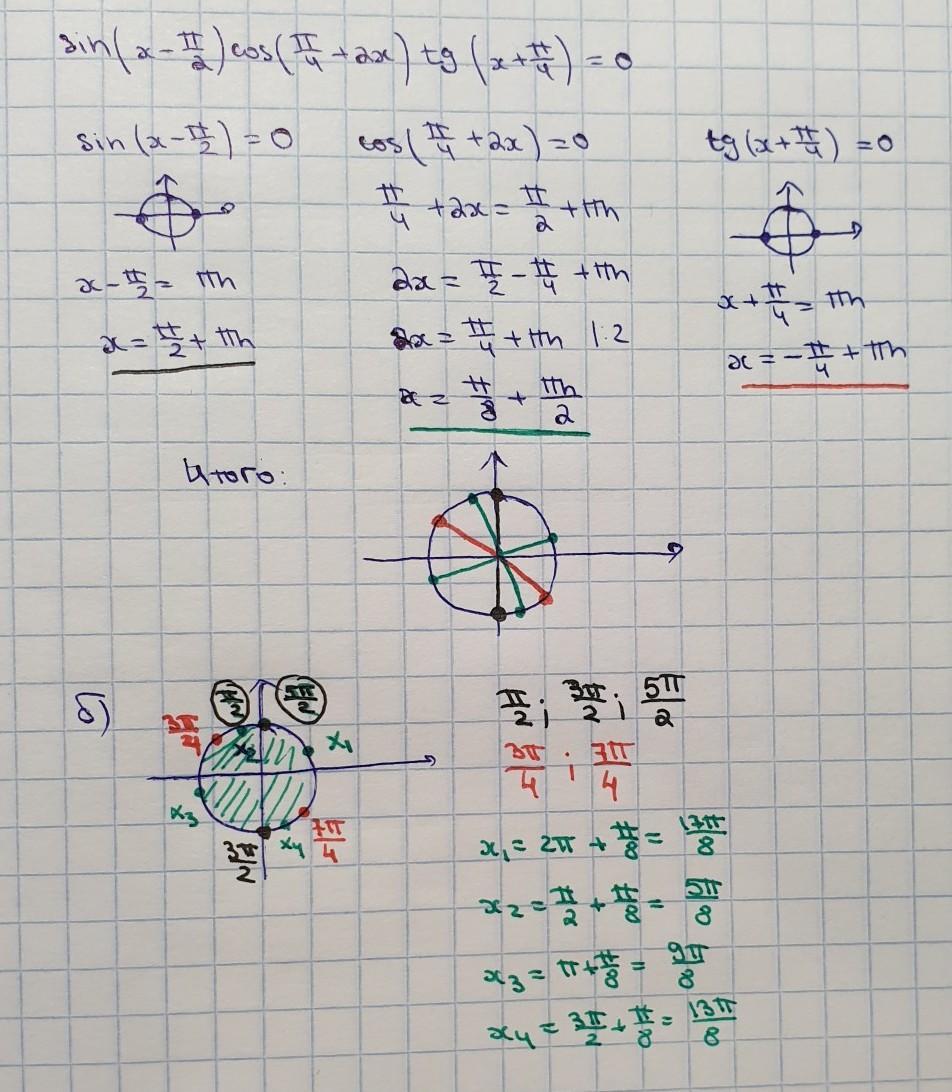 sin(x - π/2) cos(π/4 + 2x) tg(x + π/4) = 0
sin(x - π/2) = 0
x - π/2 = πn
x = π/2 + πn
cos(π/4 + 2x) = 0
π/4 + 2x = π/2 + πn
2x = π/2 - π/4 + πn
2x = π/4 + πn |:2
x = π/8 + πn/2
tg(x + π/4) = 0
x + π/4 = πn
x = -π/4 + πn
Итого:
б)
π/2 5π/2
3π/4 x₂ x₁
x₃ x₄ 7π/4
3π/2
π/2; 3π/2; 5π/2
3π/4; 7π/4
x₁ = 2π + π/8 = 17π/8
x₂ = π/2 + π/8 = 5π/8
x₃ = π + π/8 = 9π/8
x₄ = 3π/2 + π/8 = 13π/8